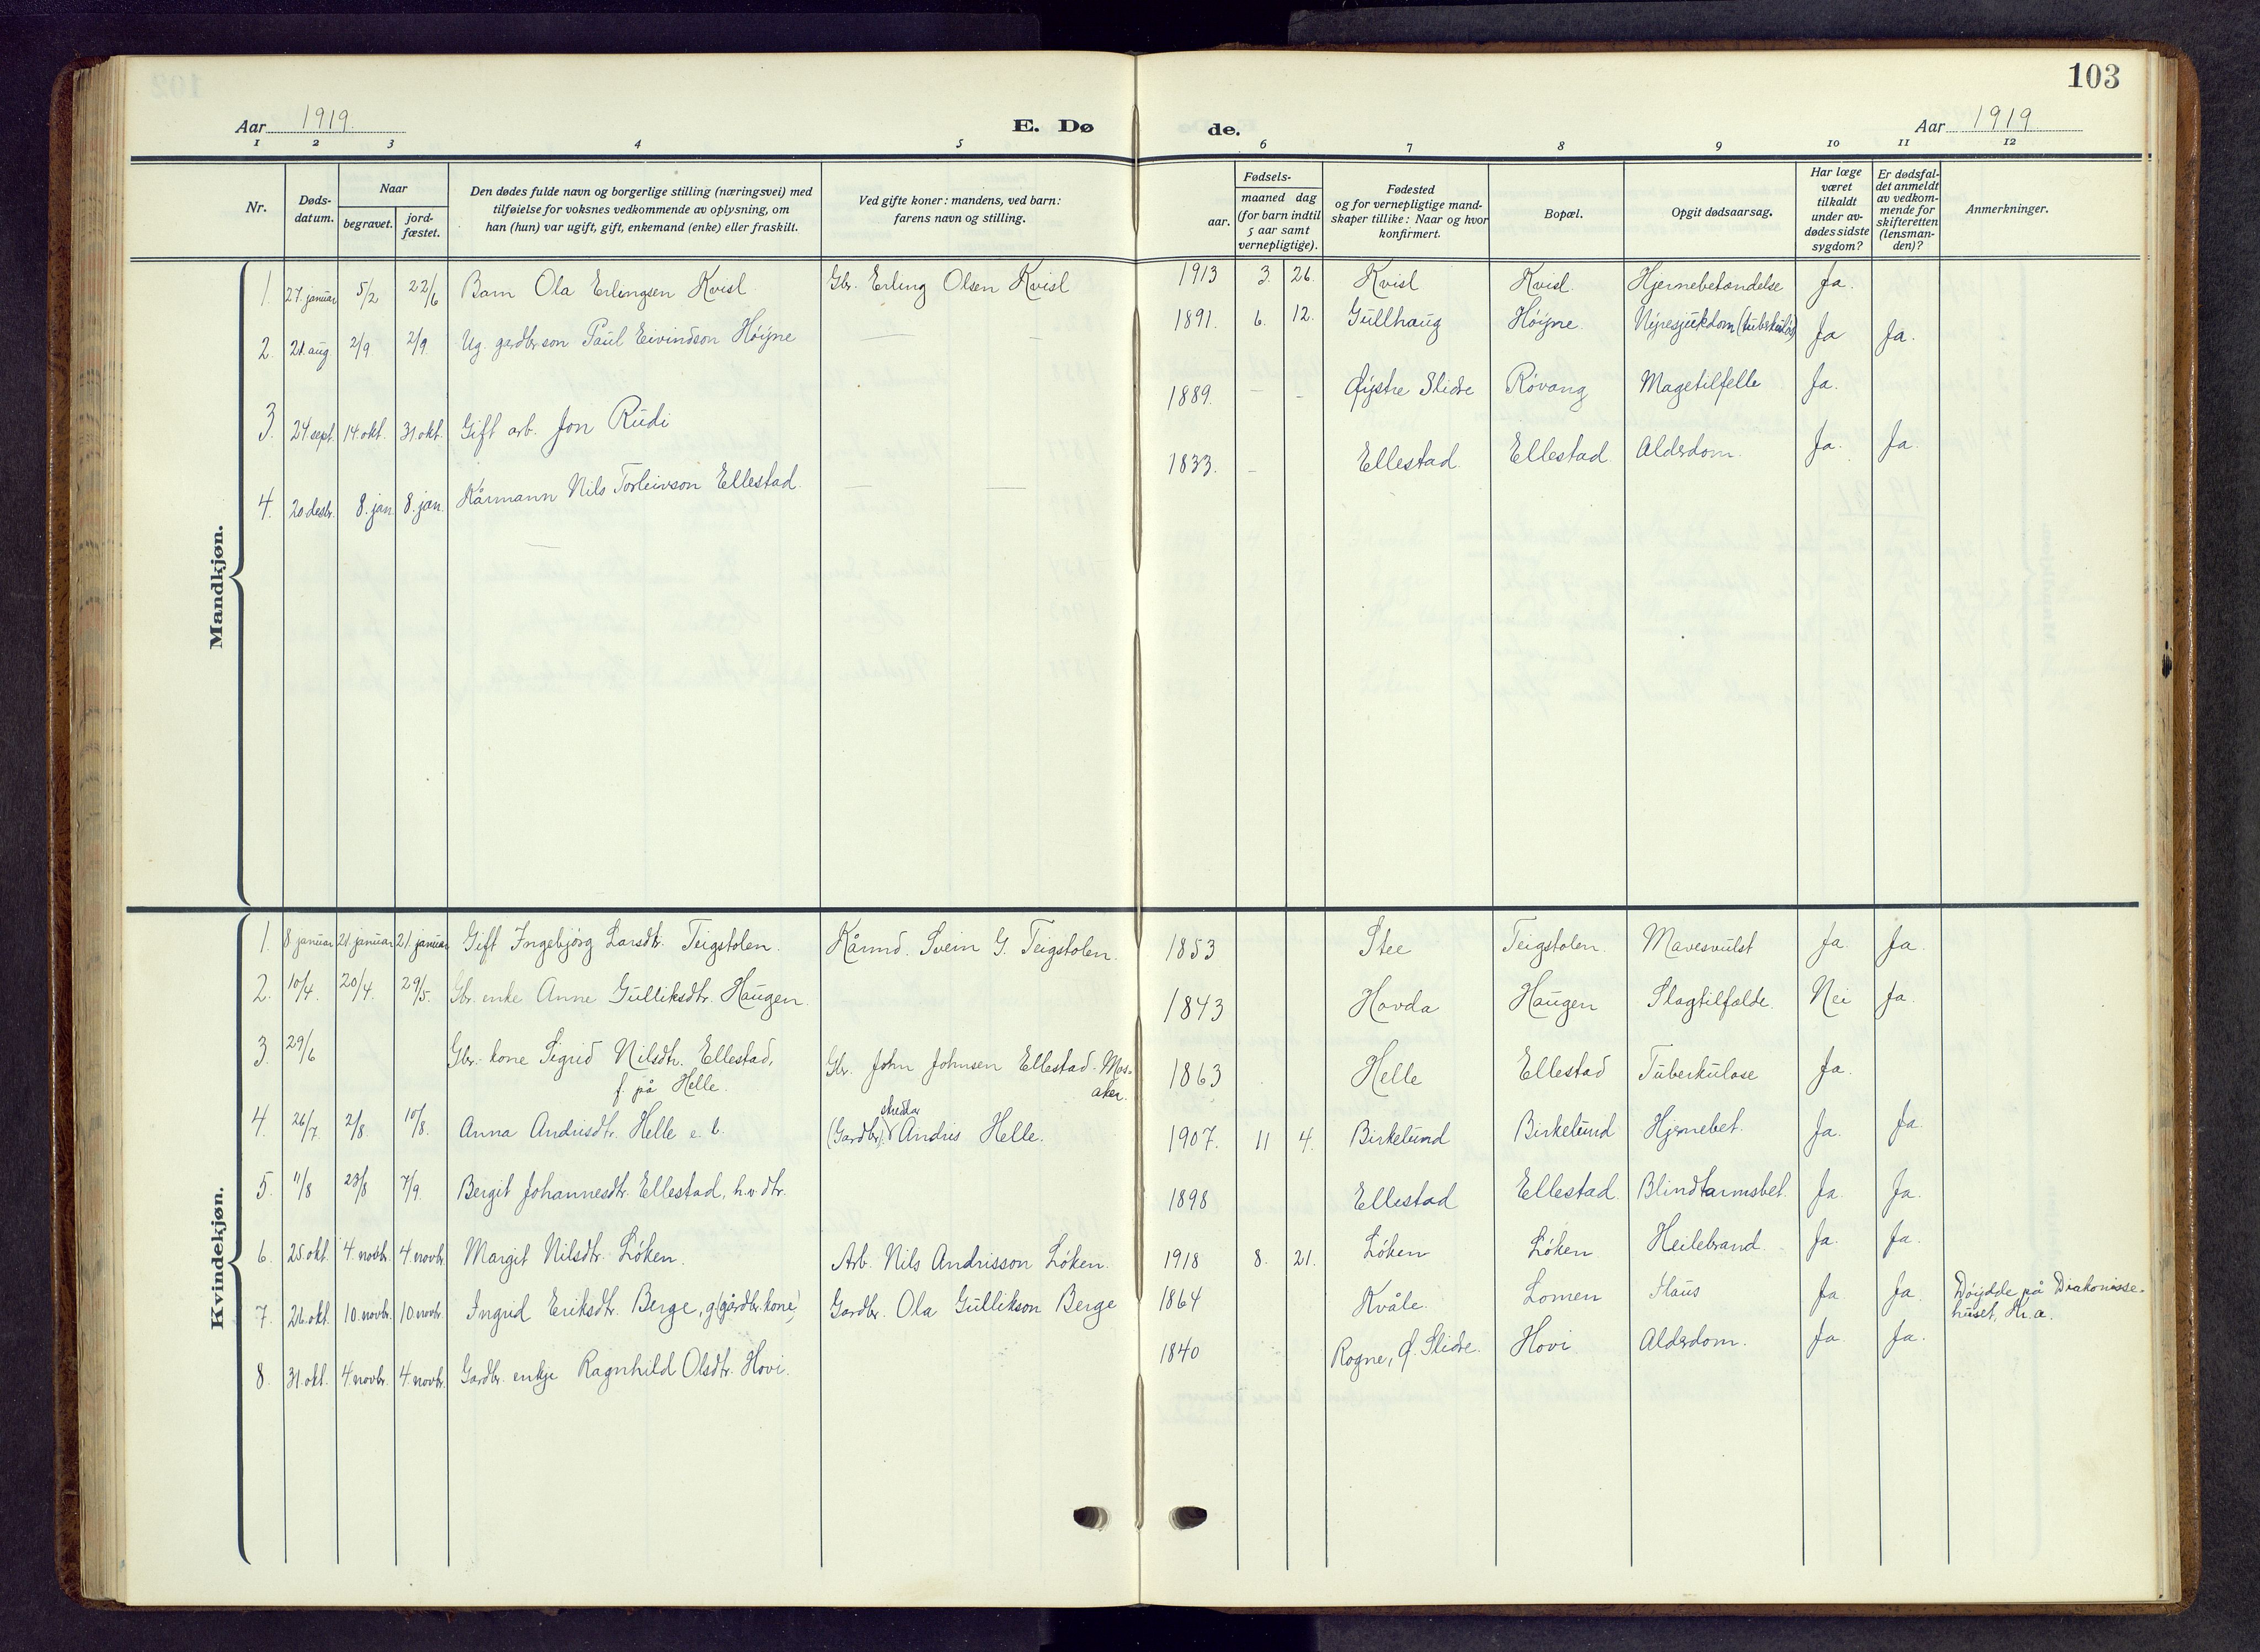 103
Aar 1919. E. Dø de. Aar 1919
1 2 3 4 5 6 7 8 9 10 11 12
Nr.
Døds-
datum.
Naar
begravet.
jord-
fæstet.
Den dødes fulde navn og borgerlige stilling (næringsvei) med
tilføielse for voksnes vedkommende av oplysning, om
han (hun) var ugift, gift, enkemand (enke) eller fraskilt.
Ved gifte koner: mandens, ved barn:
farens navn og stilling.
Fødsels-
aar.
maaned dag
(for barn indtil
5 aar samt
vernepligtige).
Fødested
og for vernepligtige mand-
skaper tillike: Naar og hvor
konfirmert.
Bopæl.
Opgit dødsaarsag.
Har læge
været
tilkaldt
under av-
dødes sidste
sygdom?
Er dødsfal-
det anmeldt
av vedkom-
mende for
skifteretten
(lensman-
den)?
Anmerkninger.
Mandkjøn.
1. 27. januar 5/2 22/6 Barn Ola Erlingsen Kvisl Gbr. Erling Olsen Kvisl 1913 3. 26. Kvisl Kvisl. Hjernebetændelse Ja.
2. 21. aug 2/9 2/9 Ug. gardbr.son Paul Eivindson Höÿne — — 1891. 6. 12. Gullhaug Höÿne. Nyresjukdom (tuberkulös) Ja Ja.
3. 24 sept. 14. okt. 31. okt. Gift arb. Jon Rudi 1889. — - Øystre Slidre Rövang Magetilfelle Ja.
4. 20 desbr. 8. jan. 8. jan. Kårmann Nils Torleivson Ellestad. — — 1833. — Ellestad. Ellestad. Alderdom. Ja. Ja.
Kvindekjøn.
1. 8 januar 21. januar 21. januar Gift Ingebjörg Larsdtr. Teigstolen. Kårmd. Svein G. Teigstolen. 1853 Stee Teigstolen. Mavesvulst Ja Ja.
2. 10/4. 20/4. 29/5. Gbr. enke Anne Gulliksdtr. Haugen. 1843 Hovda Haugen Slagtilfælde. Nei Ja.
3. 29/6 Gbr. kone Sigrid Nilsdtr. Ellestad, Gbr. John Johnsen Ellestad-Mos- 1863 Helle Ellestad Tuberkulose Ja.
f. på Helle. aker.
4. 26/7. 2/8. 10/8. Anna Andrisdtr. Helle e. b. (Gardbr.) skreddar Andris Helle. 1907. 11 4. Birkelund Birkelund Hjernebet. Ja. Ja.
5. 11/8 23/8 7/9. Bergit Johannesdtr. Ellestad, h.v. dtr. 1898 Ellestad Ellestad. Blindtarmsbet. Ja. Ja.
6. 25. okt. 4. novbr. 4. novbr. Margit Nilsdtr. Löken. Arb. Nils Andrisson Löken. 1918 8. 21. Löken Löken Heilebrand. Ja. Ja.
7. 26. okt. 10. novbr. 10. novbr. Ingrid Eriksdtr. Berge, g. (gårdbr. kone) Gardbr. Ola Gullikson Berge 1864 Kvåle. Lomen Ja Ja. Döydde på Diakonisse-
huset, Kr.a.
8. 31. okt. 4 novbr. 4. novbr. Gardbr. enkje Ragnhild Olsdtr. Hovi. 1840 Rogne, Ø. Slidre. Hovi Alderdom. Ja. Ja.